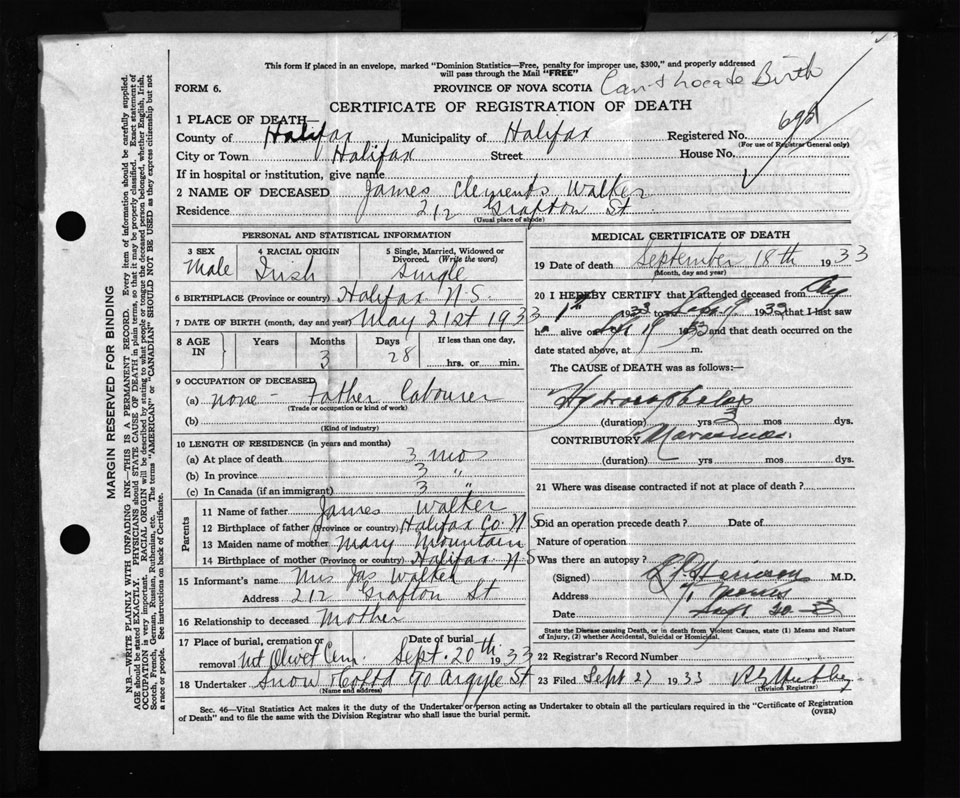 This form if placed in an envelope, marked "Dominion Statistics—Free, penalty for improper use, $300," and properly addressed
will pass through the Mail "FREE"
FORM 6.
PROVINCE OF NOVA SCOTIA Can't Locate Birth
CERTIFICATE OF REGISTRATION OF DEATH
1 PLACE OF DEATH—
County of Halifax Municipality of Halifax Registered No.
(For use of Registrar General only)
City or Town Halifax Street House No.
If in hospital or institution, give name
2 NAME OF DECEASED James Clements Walker
Residence 212 Grafton St
(Usual place of abode)
PERSONAL AND STATISTICAL INFORMATION
3 SEX Male
4 RACIAL ORIGIN Irish
5 Single, Married, Widowed or Divorced. (Write the word) Single
6 BIRTHPLACE (Province or country) Halifax N.S.
7 DATE OF BIRTH (month, day and year) May 21st 1933
8 AGE IN Years Months 3 Days 28 If less than one day, hrs. or min.
9 OCCUPATION OF DECEASED
(a) none - Father Labourer
(Trade or occupation or kind of work)
(b)
(Kind of industry)
10 LENGTH OF RESIDENCE (in years and months)
(a) At place of death 3 mos
(b) In province 3 "
(c) In Canada (if an immigrant) 3 "
Parents
11 Name of father James Walker
12 Birthplace of father (Province or country) Halifax Co. N S
13 Maiden name of mother Mary Mountain
14 Birthplace of mother (Province or country) Halifax N-S
15 Informant's name Mrs Jas Walker
Address 212 Grafton St
16 Relationship to deceased Mother
17 Place of burial, cremation or removal Mt Olivet Cem. Date of burial Sept. 20th 1933
18 Undertaker Snow & Co Ltd 90 Argyle St
(Name and address)
MEDICAL CERTIFICATE OF DEATH
19 Date of death September 18th 1933
(Month, day and year)
20 I HEREBY CERTIFY that I attended deceased from Aug
1st 1933 to Sept 19 1933 that I last saw
h alive on Sept 19 1933 and that death occurred on
date stated above, at m.
The CAUSE of DEATH was as follows:—
Hydrocephalus
(duration) yrs 3 mos dys.
CONTRIBUTORY Marasmus.
(duration) yrs mos dys.
21 Where was disease contracted if not at place of death?
Did an operation precede death? Date of
Nature of operation
Was there an autopsy?
(Signed) M.D.
Address
Date Sept 20 - 33
State the Disease causing Death, or in death from Violent Causes, state (1) Means and Nature
of Injury, (2) whether Accidental, Suicidal or Homicidal.
22 Registrar's Record Number
23 Filed Sept 27 1933
(Division Registrar)
Sec. 46—Vital Statistics Act makes it the duty of the Undertaker or person acting as Undertaker to obtain all the particulars required in the "Certificate of Registration
of Death" and to file the same with the Division Registrar who shall issue the burial permit. (OVER)
MARGIN RESERVED FOR BINDING
N.B.—WRITE PLAINLY WITH UNFADING INK—THIS IS A PERMANENT RECORD. Every item of information should be carefully supplied.
AGE should be stated EXACTLY. PHYSICIANS should STATE CAUSE OF DEATH in plain terms, so that it may be properly classified. Exact statement of
OCCUPATION is very important. RACIAL ORIGIN will be described by stating to what people or tongue the deceased person belonged, whether English, Irish,
Scotch, French, German, Russian, Ruthenian, etc. The terms "AMERICAN" or "CANADIAN" SHOULD NOT BE USED as they express citizenship but not
a race or people. See instructions on back of Certificate.